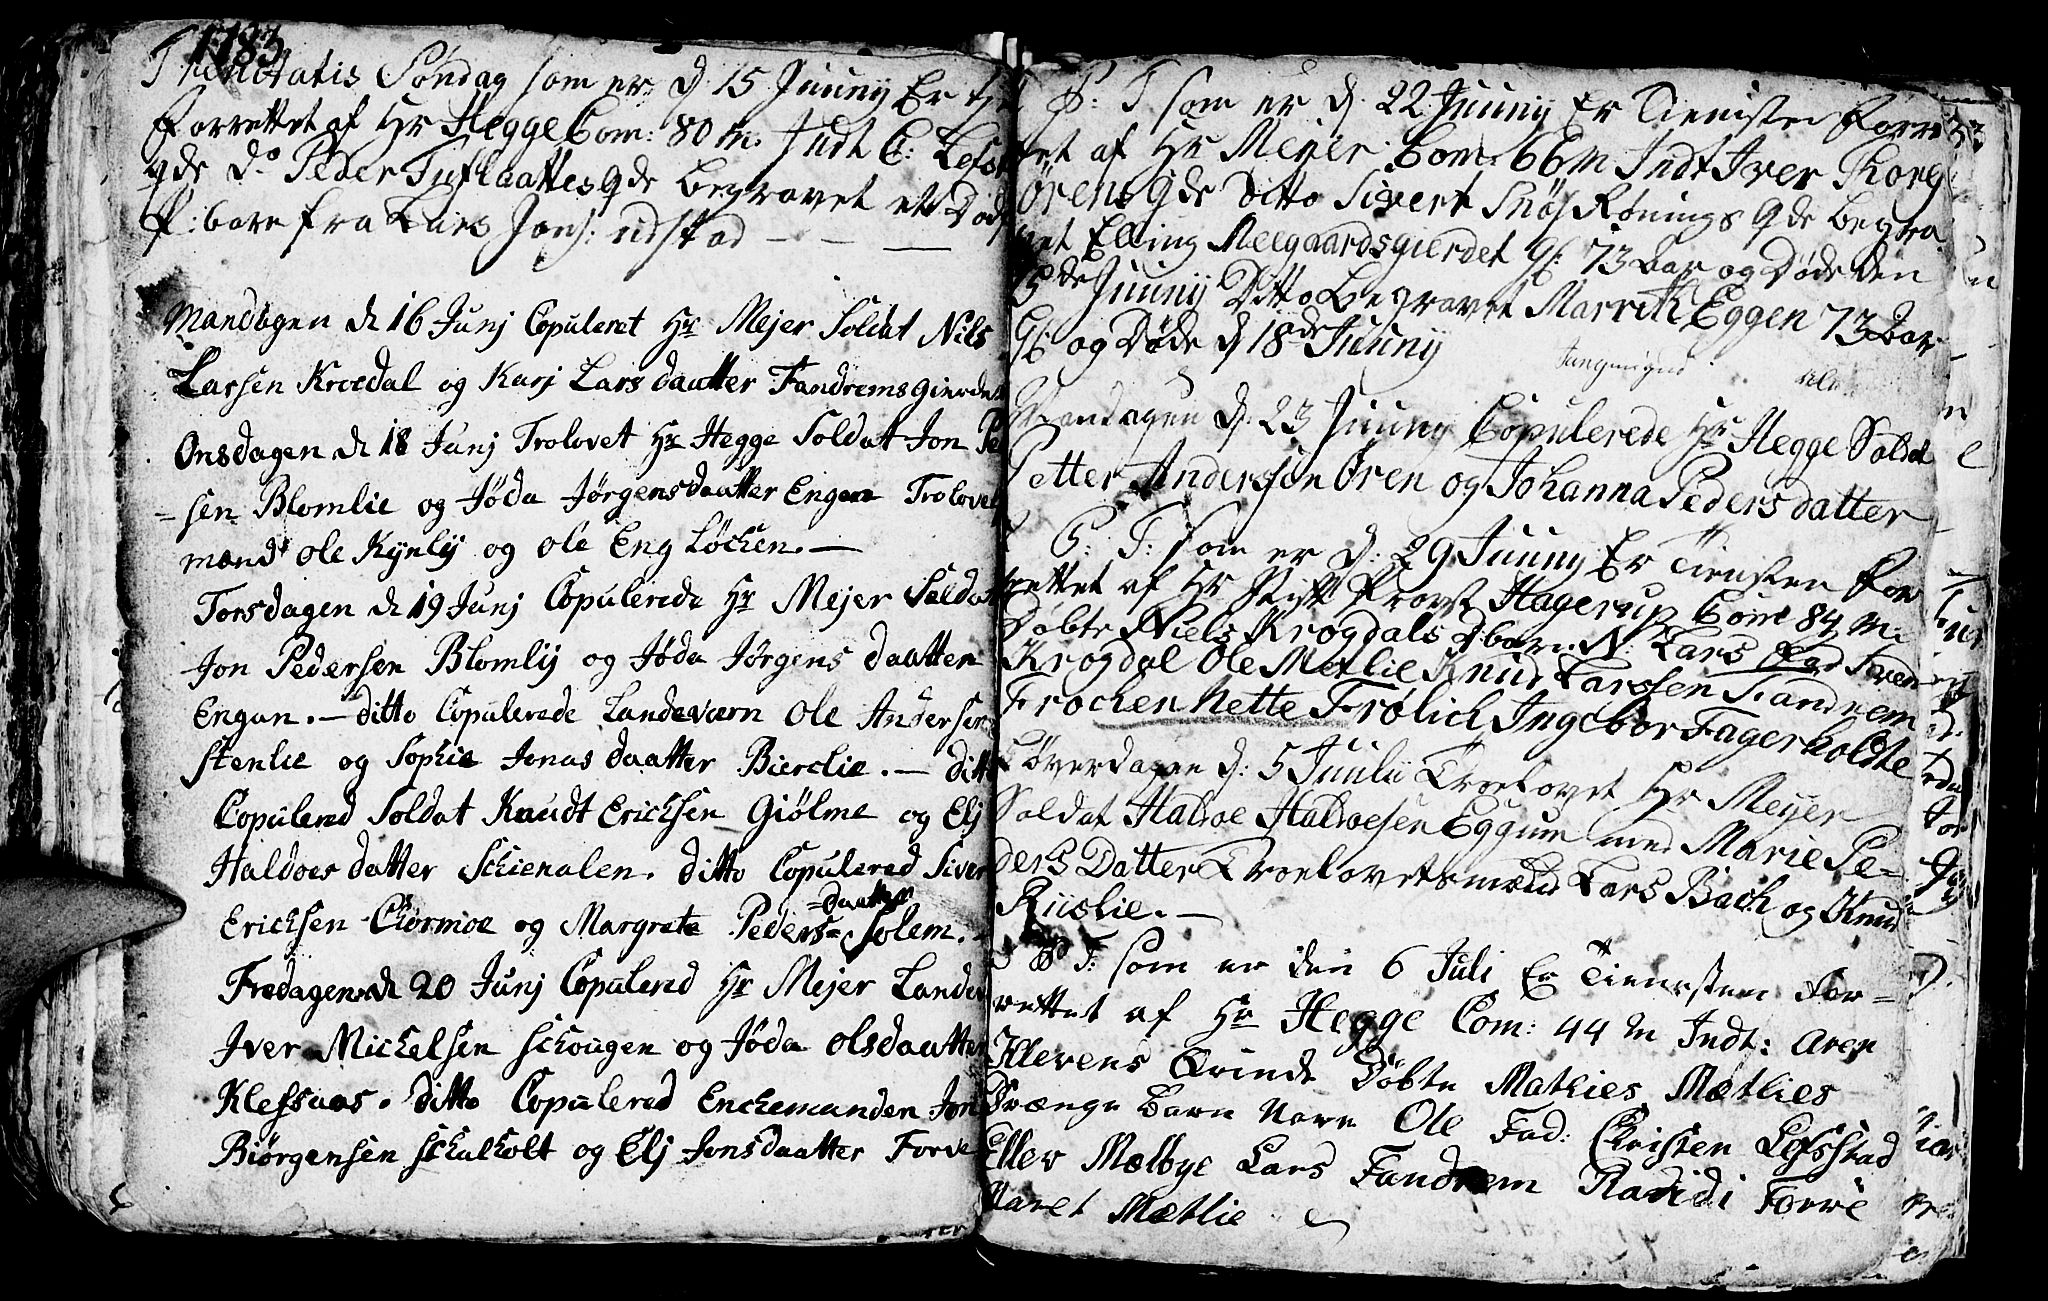 1783
Trinitatis Søndag som er d. 15 Juuny Er
forrettet af Hr Hegge Com: 80 m. Indt C: Lefst
qde Do Peder Tuflaattes qde begravet et Død
P: barn fra Lars Jons: udstad — — —
Mandagen d 16 Junj Copuleret Hr Mejer Soldat Nils
Larsen Kroedal og Karj Larsdaatter Fandremsgierde
Onsdagen d 18 Junj Trolovet Hr Hegge Soldat Jon Pe
=sen Blomlie og Jøda Jørgensdaatter Engan Trolovet
mend Ole Kynlij og Ole Eng Løchen. —
Torsdagen d 19 Junj Copulerede Hr Mejer Soldat
Jon Pedersen Blomlij og Jøda Jørgens daatter
Engan. — ditto Copulerede Landeværn Ole Andersen
Stenlie og Sophie Jonas daatter Bierclie. — ditto
Copulered Soldat Knudt Ericksen Giølme og Elj
Haldoesdatter Schienalen. ditto Copulered Siver
Ericksen Chormoe og Margrete Peders=
=daatter
Solem. —
Fredagen d 20 Junj Copulered Hr Mejer Lande
Iver Mickelsen Schougen og Jøda Olsdaatter
Klefsaas. ditto Copulered Enckemanden Jon
Biørgensen Schalholt og Elj Jonsdaatter Forve
P: T som er d. 22 Juuny Er Tienisten forre
tet af Hr Meyer Com: 66 m Indt Iver Korg
Ørens qde Ditto Sivert Snøs Rønings qde begra
vet Elling Melgaardsgierdet Gl: 73 Aar og Døde den
15de Juuny Ditto begravet Marrith Eggen 73 Aar
Gl: og Døde d 18de Juuny
Mandagen d. 23 Juuny Copulerede Hr Hegge Soldat
Petter Andersen Øren og Johanna Pedersdatter
P: T: som er d: 29 Juuny Er Tienisten for
rettet af Hr Stift Provst Hagerup Com 84 m:
Døbte Niels Krogdals d:barn N: Lars Fad
Krogdal Ole Metlie Knud Larssen Fandrem
Frøchen Nette Frølich Ingebor Fagerholdte
Løverdagen d: 5 Juuly Troelovet Hr Meyer
Soldat Haldoe Haldoesen Eggum med Marie Pe=
ders Datter Troelovetsmænd Lars Bach og Knud
Riislie. —
P T: som er den 6 Juli Er Tienesten For=
rettet af Hr Hegge Com: 44 m Indt: Aren
Klevens Qvinde Døbte Mathies Mætlies
Drænge barn Navn Ole Fad: Christen Lefsstad
Eller Mælbye Lars Fandrem Randi Forve
Maret Mætlie